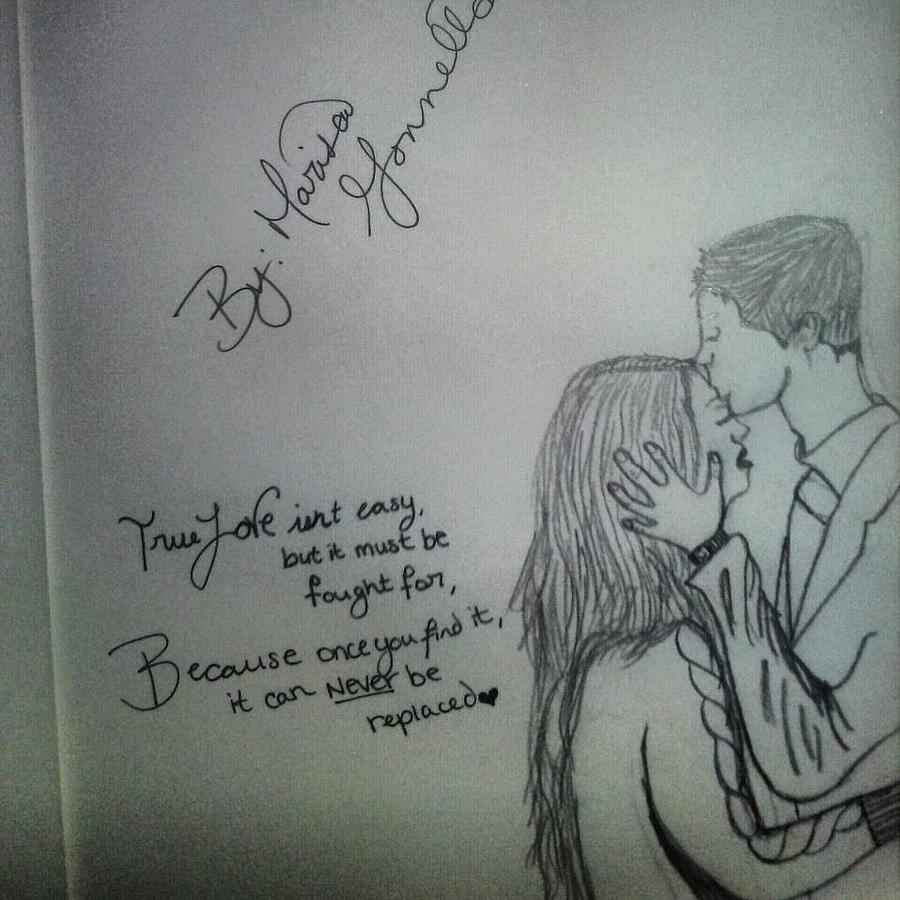 By: Marisa
Gonnella
True Love isnt easy,
but it must be
fought for,
Because once you find it,
it can never be
replaced♥